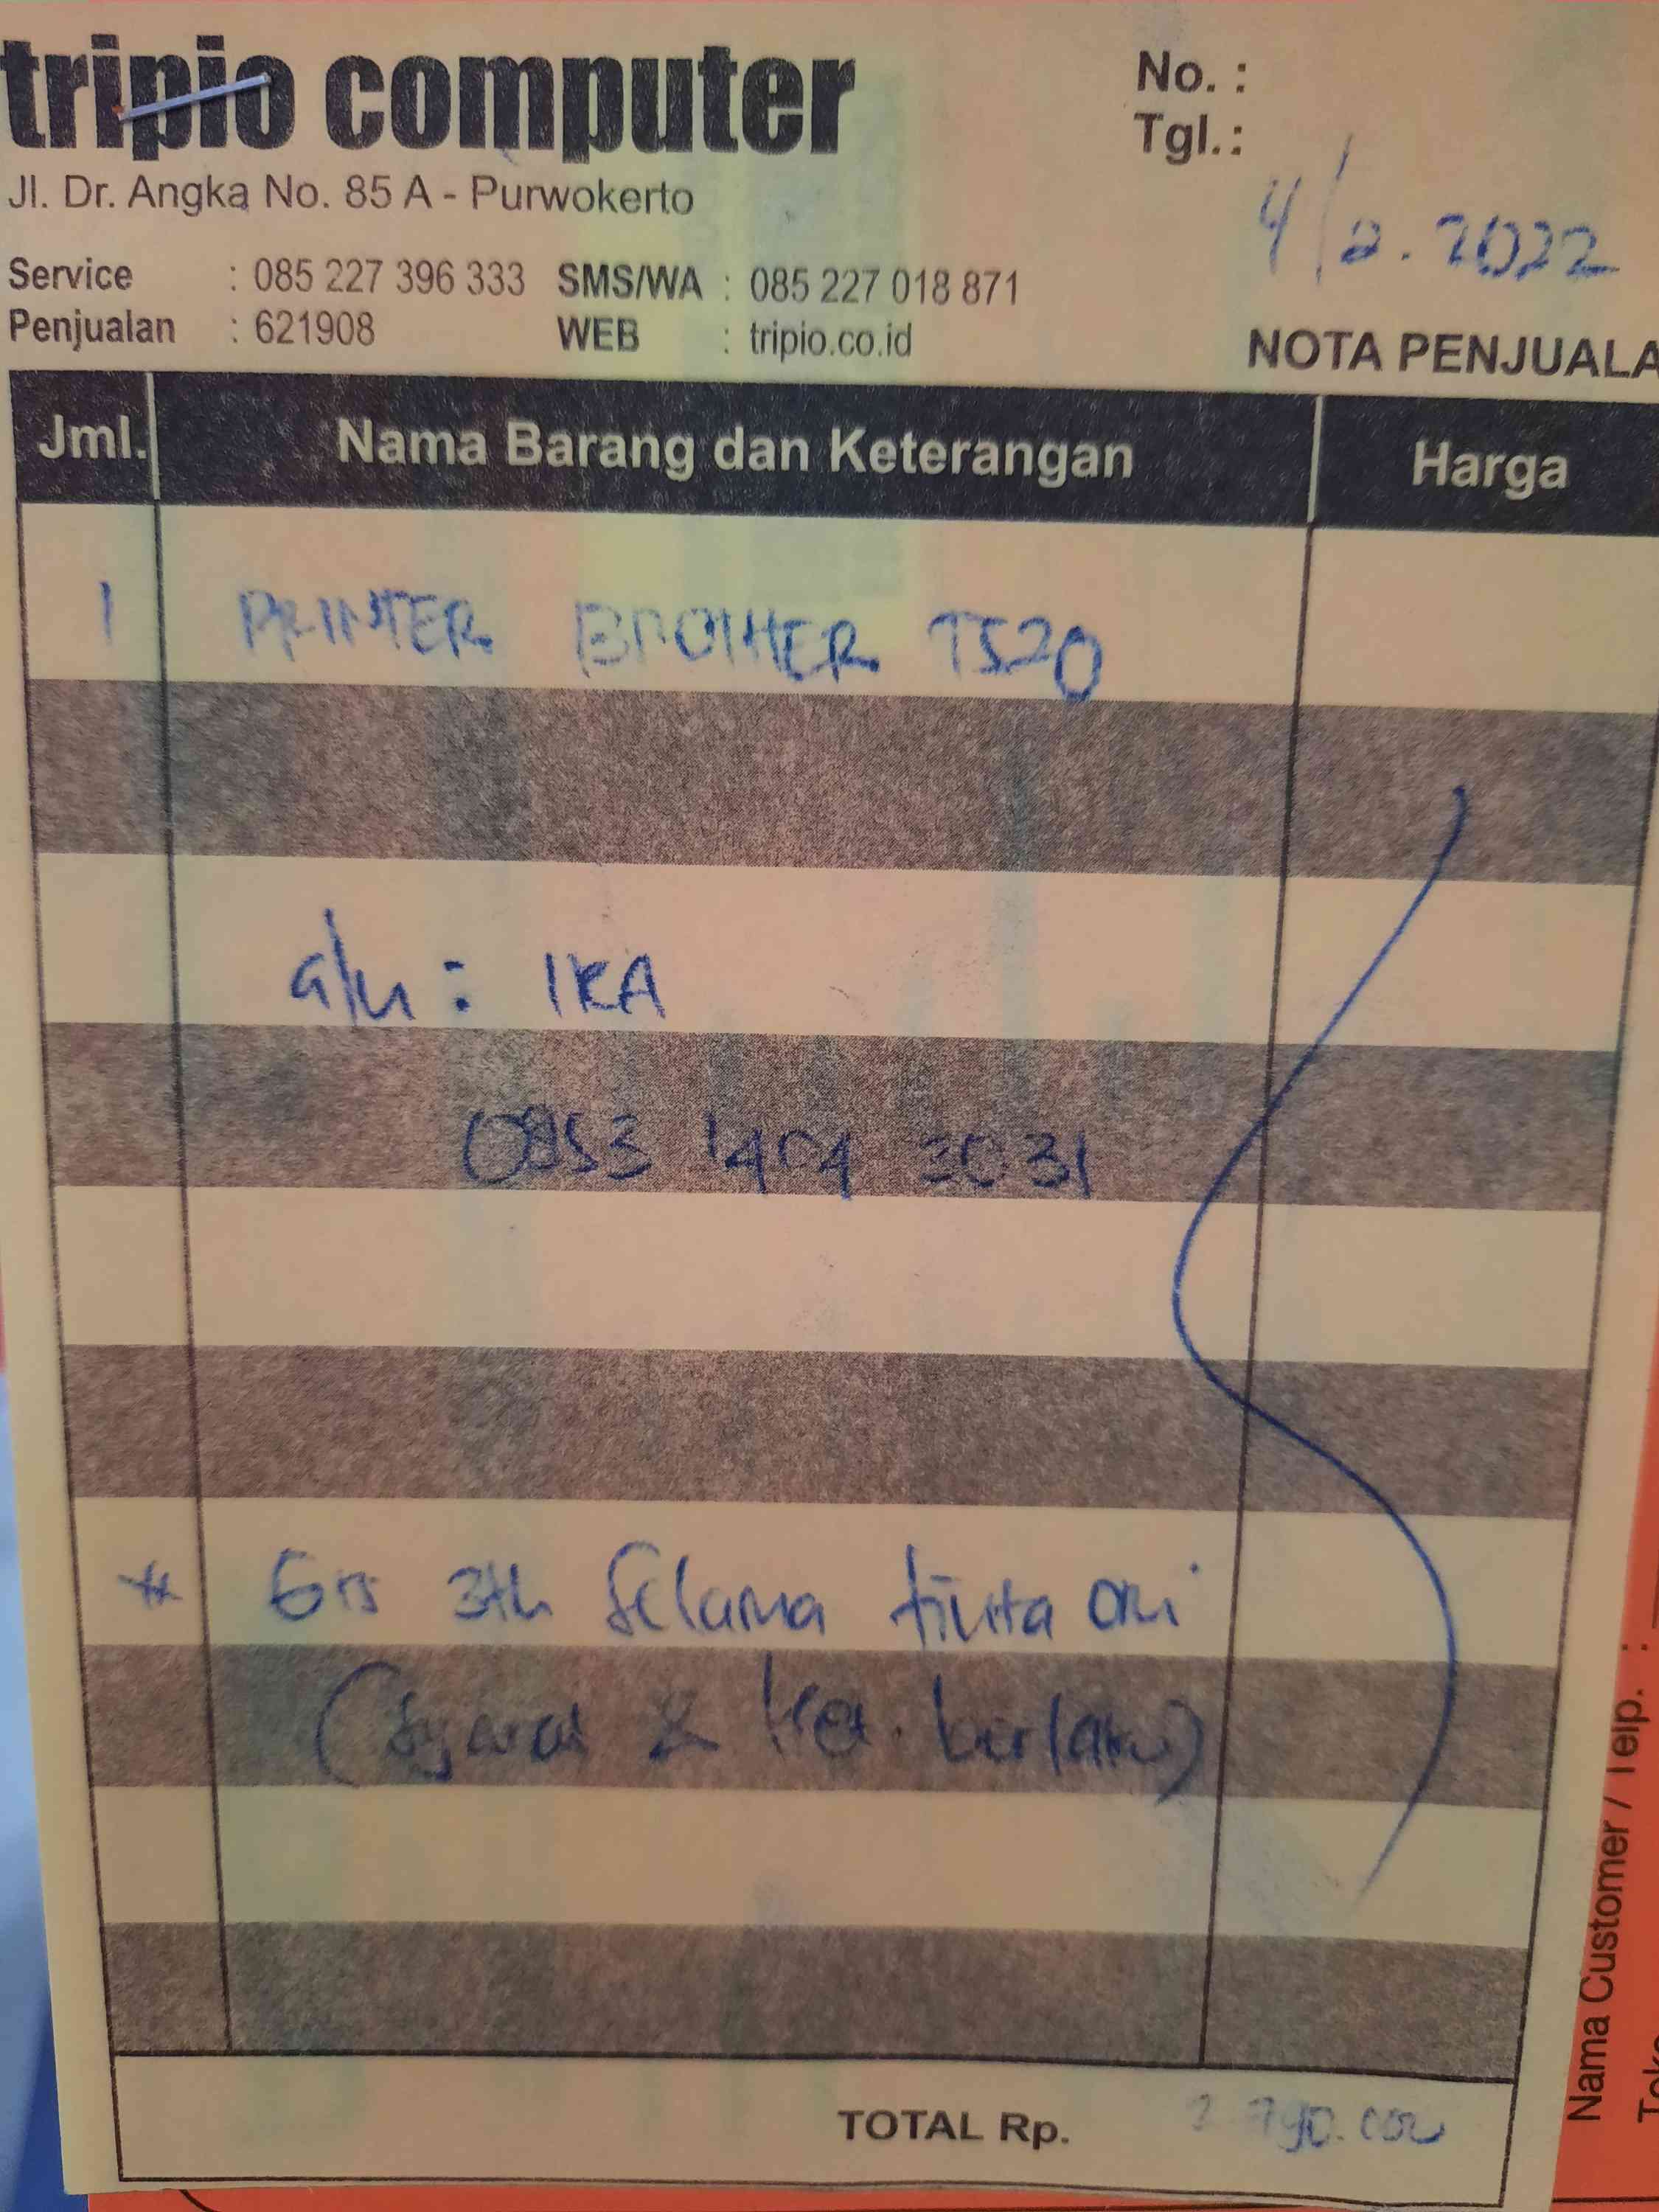 tripio computer
Jl. Dr. Angka No. 85 A - Purwokerto
No. :
Tgl. : 4/2.2022
Service : 085 227 396 333 SMS/WA : 085 227 018 871
Penjualan : 621908 WEB : tripio.co.id
NOTA PENJUALA
Jml. Nama Barang dan Keterangan Harga
1 PRINTER BROTHER T520
a/n : IKA
0853 1404 3031
* Grs 3th selama tinta ori
(Syarat & ket. berlaku)
TOTAL Rp. 2.790.000
Nama Customer / Telp. :